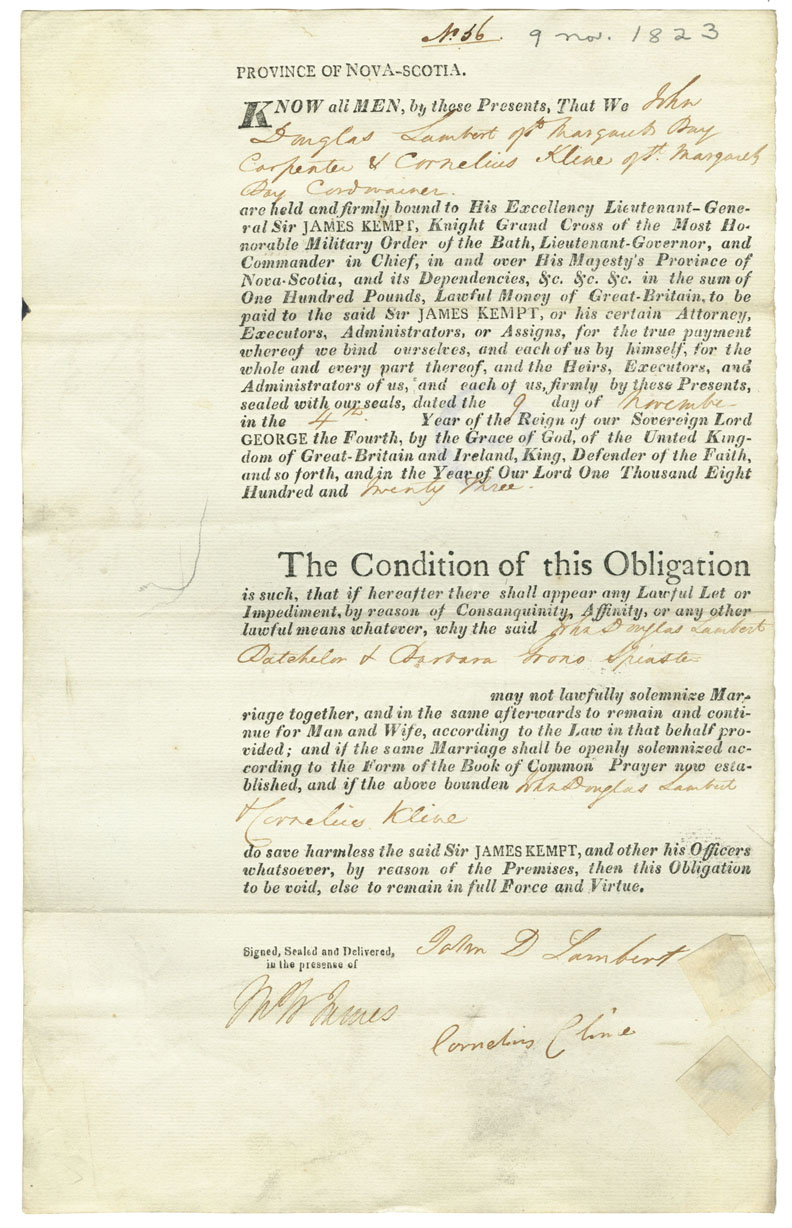 No. 56. 9 nov. 1823
PROVINCE OF NOVA-SCOTIA.
KNOW all MEN, by these Presents, That We John
Douglas Lambert of St Margarets Bay
Carpenter & Cornelius Kline of St. Margarets
Bay Cordwainer.
are held and firmly bound to His Excellency Lieutenant-Gene-
ral Sir JAMES KEMPT, Knight Grand Cross of the Most Ho-
norable Military Order of the Bath, Lieutenant-Governor, and
Commander in Chief, in and over His Majesty's Province of
Nova-Scotia, and its Dependencies, &c. &c. &c. in the sum of
One Hundred Pounds, Lawful Money of Great-Britain, to be
paid to the said Sir JAMES KEMPT, or his certain Attorney,
Executors, Administrators, or Assigns, for the true payment
whereof we bind ourselves, and each of us by himself, for the
whole and every part thereof, and the Heirs, Executors, and
Administrators of us, and each of us, firmly by these Presents,
sealed with our seals, dated the 9 day of November
in the 4th. Year of the Reign of our Sovereign Lord
GEORGE the Fourth, by the Grace of God, of the United King-
dom of Great-Britain and Ireland, King, Defender of the Faith,
and so forth, and in the Year of Our Lord One Thousand Eight
Hundred and twenty Three.
The Condition of this Obligation
is such, that if hereafter there shall appear any Lawful Let or
Impediment, by reason of Consanquinity, Affinity, or any other
lawful means whatever, why the said John Douglas Lambert
Batchelor & Barbara Spinster
may not lawfully solemnize Mar-
riage together, and in the same afterwards to remain and conti-
nue for Man and Wife, according to the Law in that behalf pro-
vided; and if the same Marriage shall be openly solemnized ac-
cording to the Form of the Book of Common Prayer now esta-
blished, and if the above bounden John Douglas Lambert
& Cornelius Kline
do save harmless the said Sir JAMES KEMPT, and other his Officers
whatsoever, by reason of the Premises, then this Obligation
to be void, else to remain in full Force and Virtue.
Signed, Sealed and Delivered,
in the presence of
John D Lambert
James
Cornelius Cline